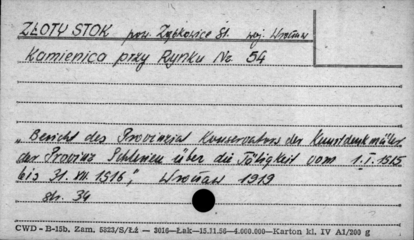 ZŁOTY STOK pow. Ząbkowice Śl. woj. Wrocław
Kamienica przy Rynku Nr 54
„Bericht des Provinzial Konservators der Kunstdenkmäler
der Provinz Schlesien über die Tätigkeit vom 1.I.1915
bis 31.XII.1916", Wrocław 1919
str. 34
CWD - B-15b. Zam. 5223/S/Łź — 3016—Łak—15.11.56—4.000.000—Karton kl. IV A1/200 g